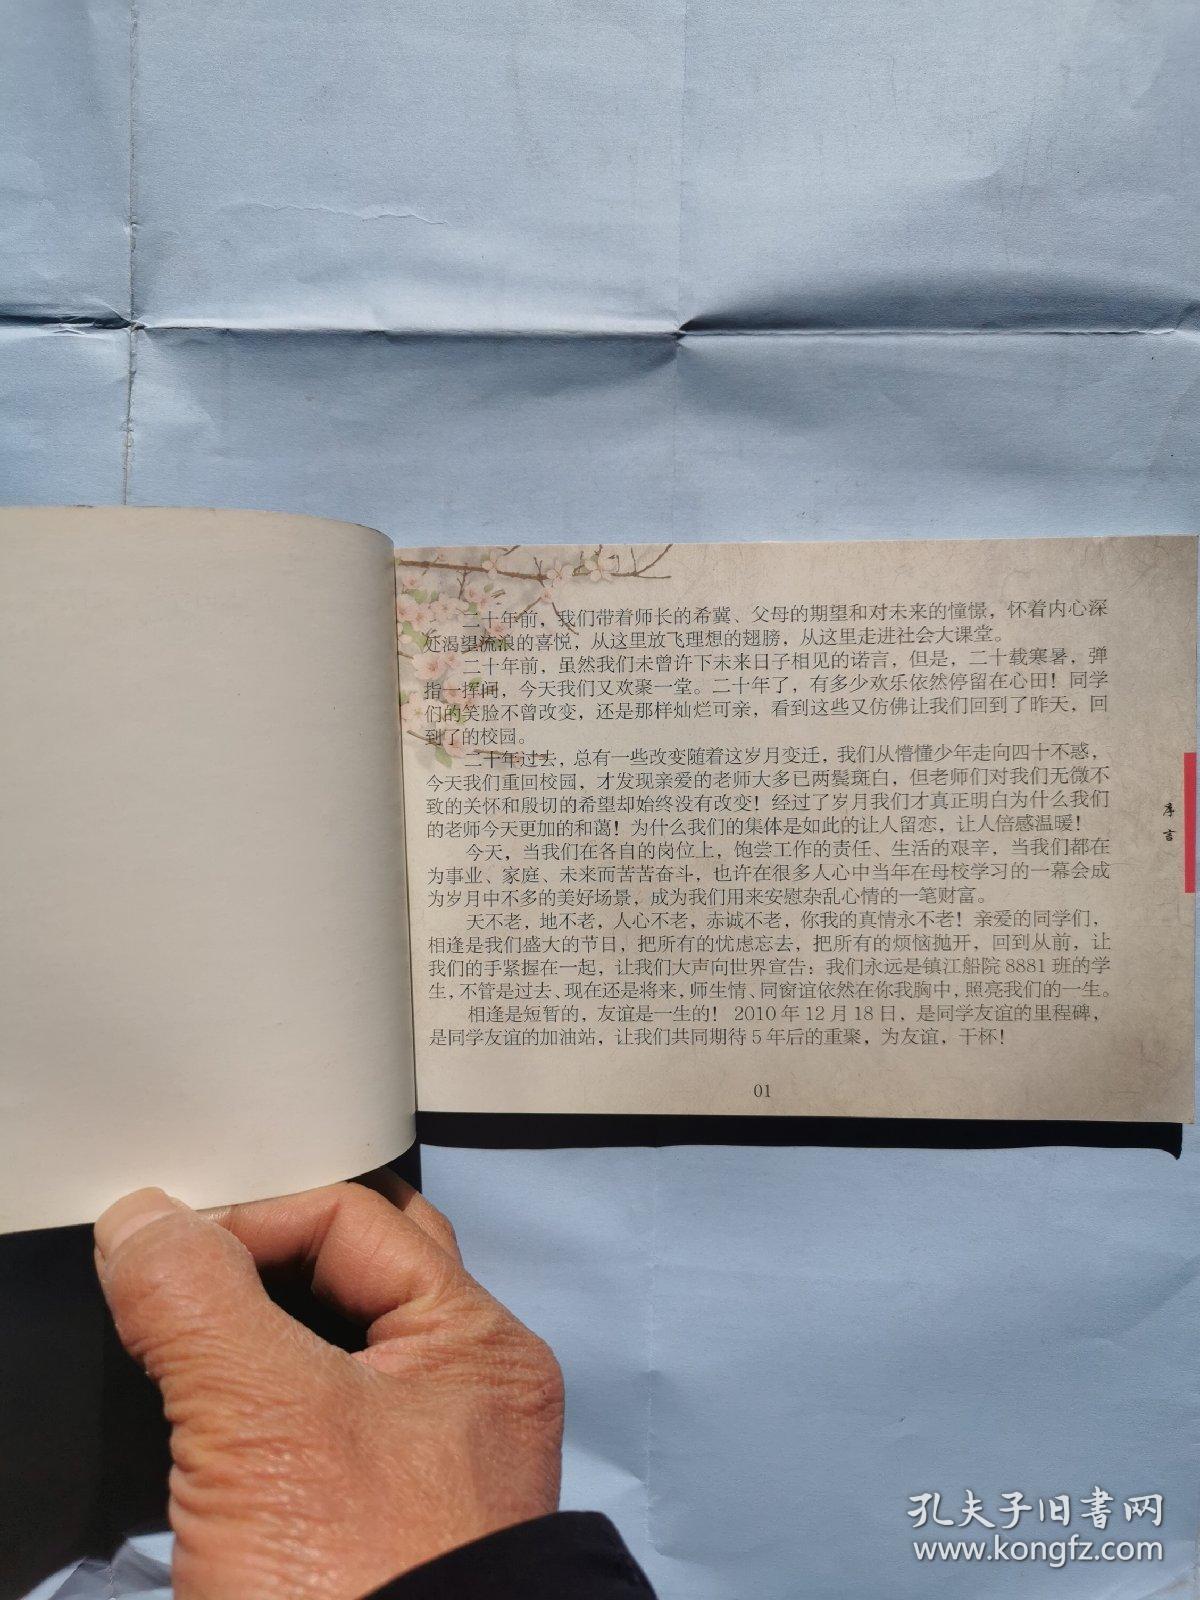 二十年前，我们带着师长的希冀、父母的期望和对未来的憧憬，怀着内心深
处渴望流浪的喜悦，从这里放飞理想的翅膀，从这里走进社会大课堂。
二十年前，虽然我们未曾许下未来日子相见的诺言，但是，二十载寒暑，弹
指一挥间，今天我们又欢聚一堂。二十年了，有多少欢乐依然停留在心田！同学
们的笑脸不曾改变，还是那样灿烂可亲，看到这些又仿佛让我们回到了昨天，回
到了的校园。
二十年过去，总有一些改变随着这岁月变迁，我们从懵懂少年走向四十不惑，
今天我们重回校园，才发现亲爱的老师大多已两鬓斑白，但老师们对我们无微不
致的关怀和殷切的希望却始终没有改变！经过了岁月我们才真正明白为什么我们
的老师今天更加的和蔼！为什么我们的集体是如此的让人留恋，让人倍感温暖！
今天，当我们在各自的岗位上，饱尝工作的责任、生活的艰辛，当我们都在
为事业、家庭、未来而苦苦奋斗，也许在很多人心中当年在母校学习的一幕会成
为岁月中不多的美好场景，成为我们用来安慰杂乱心情的一笔财富。
天不老，地不老，人心不老，赤诚不老，你我的真情永不老！亲爱的同学们，
相逢是我们盛大的节日，把所有的忧虑忘去，把所有的烦恼抛开，回到从前，让
我们的手紧握在一起，让我们大声向世界宣告：我们永远是镇江船院 8881 班的学
生，不管是过去、现在还是将来，师生情、同窗谊依然在你我胸中，照亮我们的一生。
相逢是短暂的，友谊是一生的！ 2010 年 12 月 18 日，是同学友谊的里程碑，
是同学友谊的加油站，让我们共同期待 5 年后的重聚，为友谊，干杯！
01
序言
孔夫子旧书网
www.kongfz.com